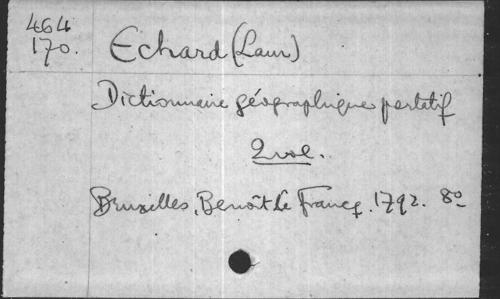 464
170.
Echard (Laur)
Dictionnaire géographique portatif
2 vol.
Bruxelles, Benoît Le Francq. 1792. 8º